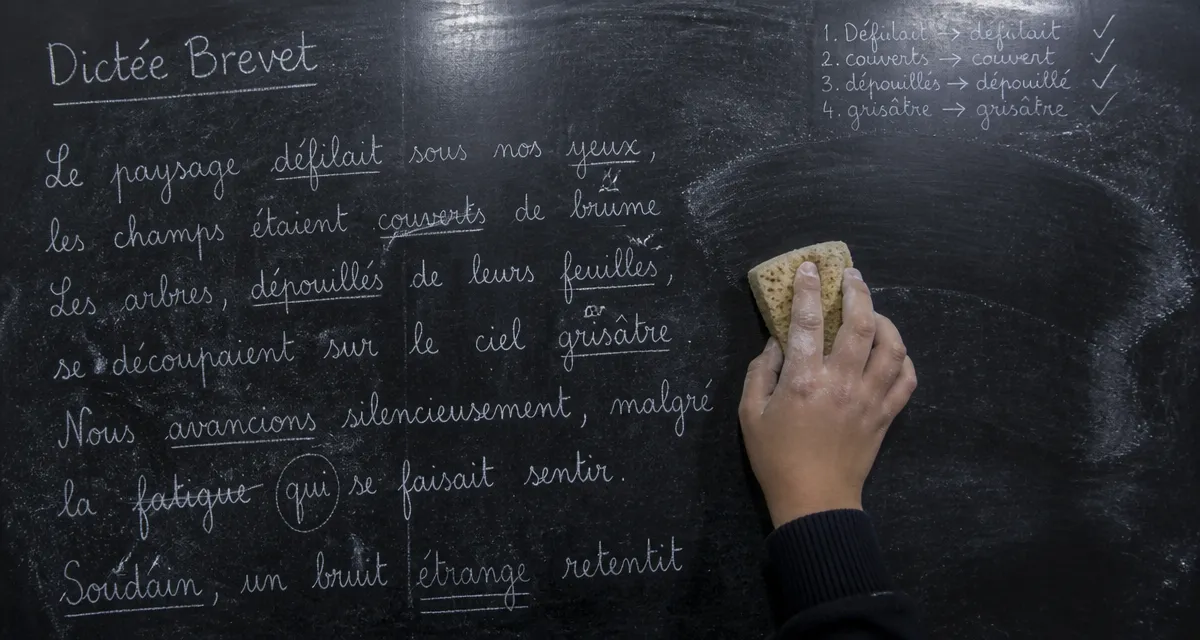 Dictée Brevet
Le paysage défilait sous nos yeux,
les champs étaient couverts de brume
Les arbres, dépouillés de leurs feuilles,
se découpaient sur le ciel grisâtre
Nous avancions silencieusement, malgré
la fatigue qui se faisait sentir.
Soudain, un bruit étrange retentit
1. Défilait → défilait ✓
2. couverts → couvert ✓
3. dépouillés → dépouillé ✓
4. grisâtre → grisâtre ✓